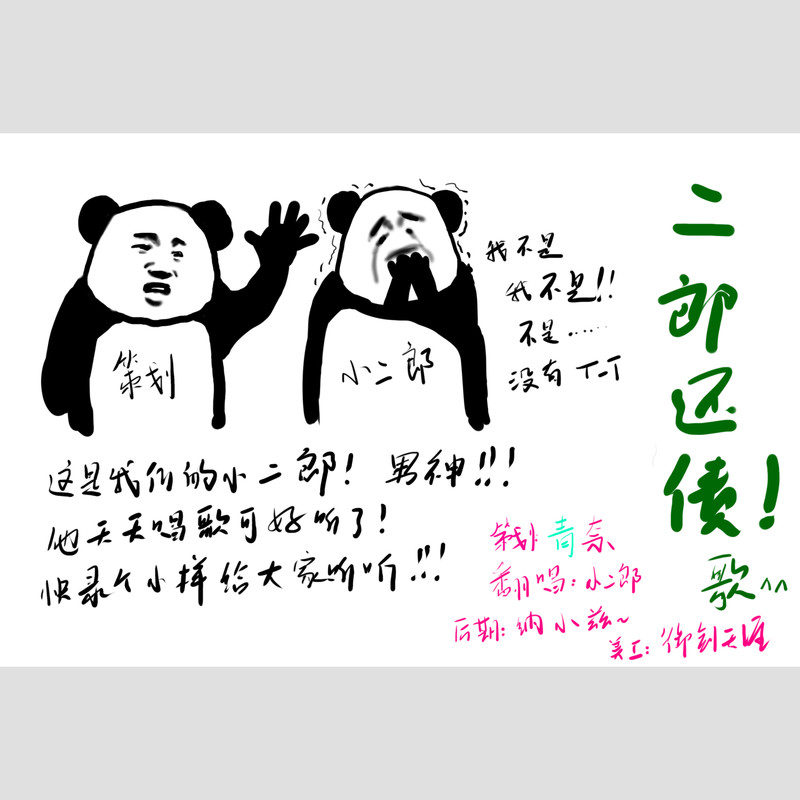 策划
小二郎
我不是
我不是!!
不是......
没有 T-T
这是我们的小二郎! 男神!!!
他天天唱歌可好听了!
快录个小样给大家听听!!!
二郎还债!
歌^^
策划 青奈
翻唱:小二郎
后期:纳小兹~
美工:御剑天涯